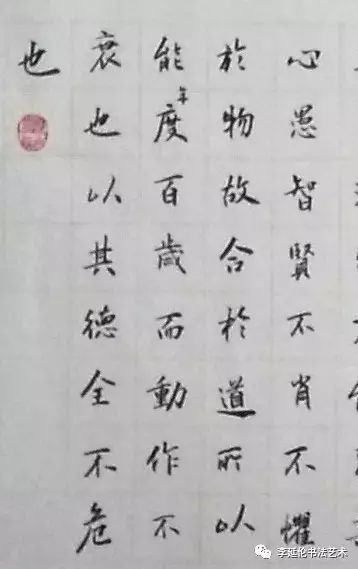 心愚智賢不肖不懼
於物故合於道所以
能年度百歲而動作不
衰也以其德全不危
也
李延伦书法艺术